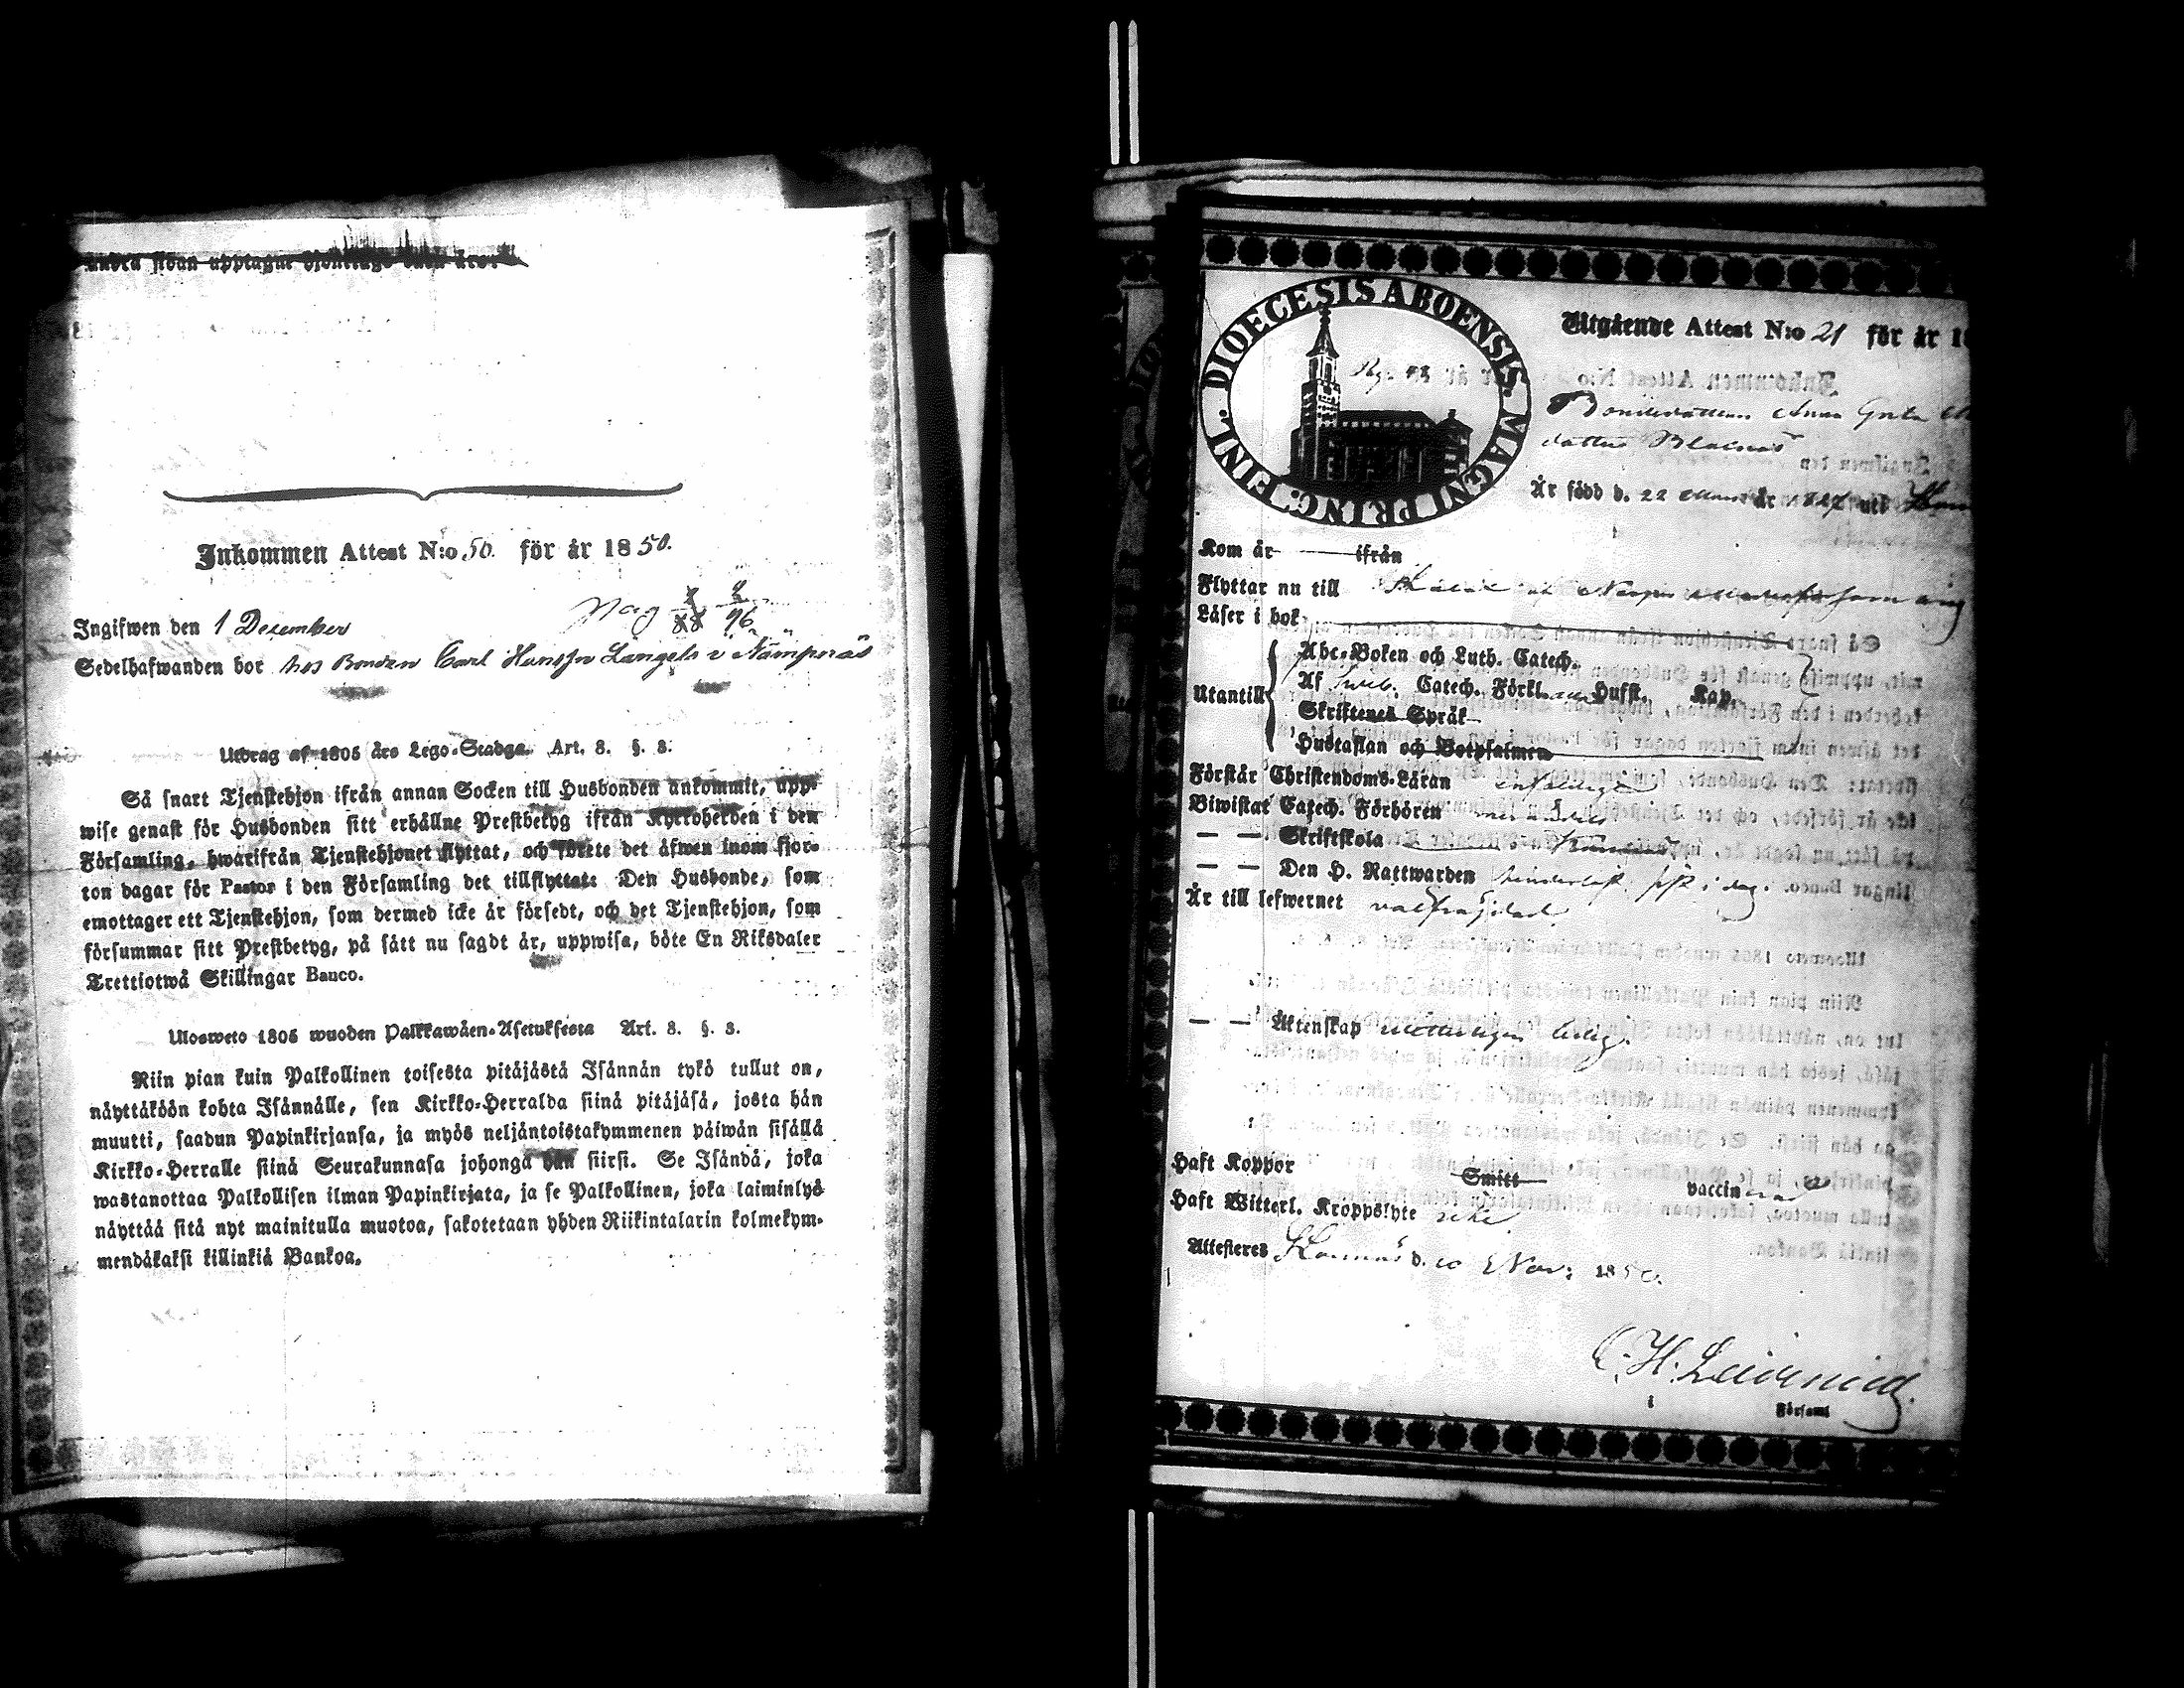 andra sidan upptagne
Inkommen Attest N:o 50. för år 1850.
Pag
96
Ingifwen den 1 December
Sedelhafwanden bor hos Bonden Carl Hansson Långels i Nämpnäs
Utdrag af 1805 års Lego-Stadga. Art. 8. §. 3.
Så snart Tjenstehjon ifrån annan Socken till Husbonden ankommit, upp-
wise genast för Husbonden sitt erhållne Prestbetyg ifrån Kyrkoherden i den
Församling, hwarifrån Tjenstehjonet flyttat, och förete det äfwen inom fjor-
ton dagar för Pastor i den Församling det tillflyttat: Den Husbonde, som
emottager ett Tjenstehjon, som dermed icke är försedt, och det Tjenstehjon, som
försummar sitt Prestbetyg, på sätt nu sagdt är, uppwisa, böte En Riksdaler
Trettiotwå Skillingar Banco.
Ulosweto 1805 wuoden Palkkawäen-Asetuksesta Art. 8. §. 3.
Niin pian kuin Palkollinen toisesta pitäjästä Isännän tykö tullut on,
näyttäköön kohta Isännälle, sen Kirkko-Herralda siinä pitäjäsä, josta hän
muutti, saadun Papinkirjansa, ja myös neljäntoistakymmenen päiwän sisällä
Kirkko-Herralle siinä Seurakunnasa johonga hän siirsi. Se Isändä, joka
wastanottaa Palkollisen ilman Papinkirjata, ja se Palkollinen, joka laiminlyö
näyttää sitä nyt mainitulla muotoa, sakotetaan yhden Riikintalarin kolmekym-
mendäkaksi killinkiä Bankoa.
DIOECESIS ABOENSIS. MAGNI PRINC. FINL.
Utgående Attest N:o 21 för år 1
Bondedottren Anna Greta
dotter
Är född d. 22 år 1827 uti
Kom år ifrån
Flyttar nu till
Läser i bok
Utantill
Abc-Boken och Luth. Catech.
Af Sveb. Catech. Förkl. Husst. Kap.
Skriftenes Språk
Hustaflan och Botpsalmen
Förstår Christendoms-Läran enfaldigt
Biwistat Catech. Förhören
— — Skriftskola
— — Den H. Nattwarden sist i dag.
Är till lefwernet välfrejdad
— — Äktenskap ledig.
Haft Koppor Smitt vaccin
Haft Witterl. Kroppslyte icke
Attesteras Korsnäs d. 10 Nov: 1850.
C. H.
i Församl